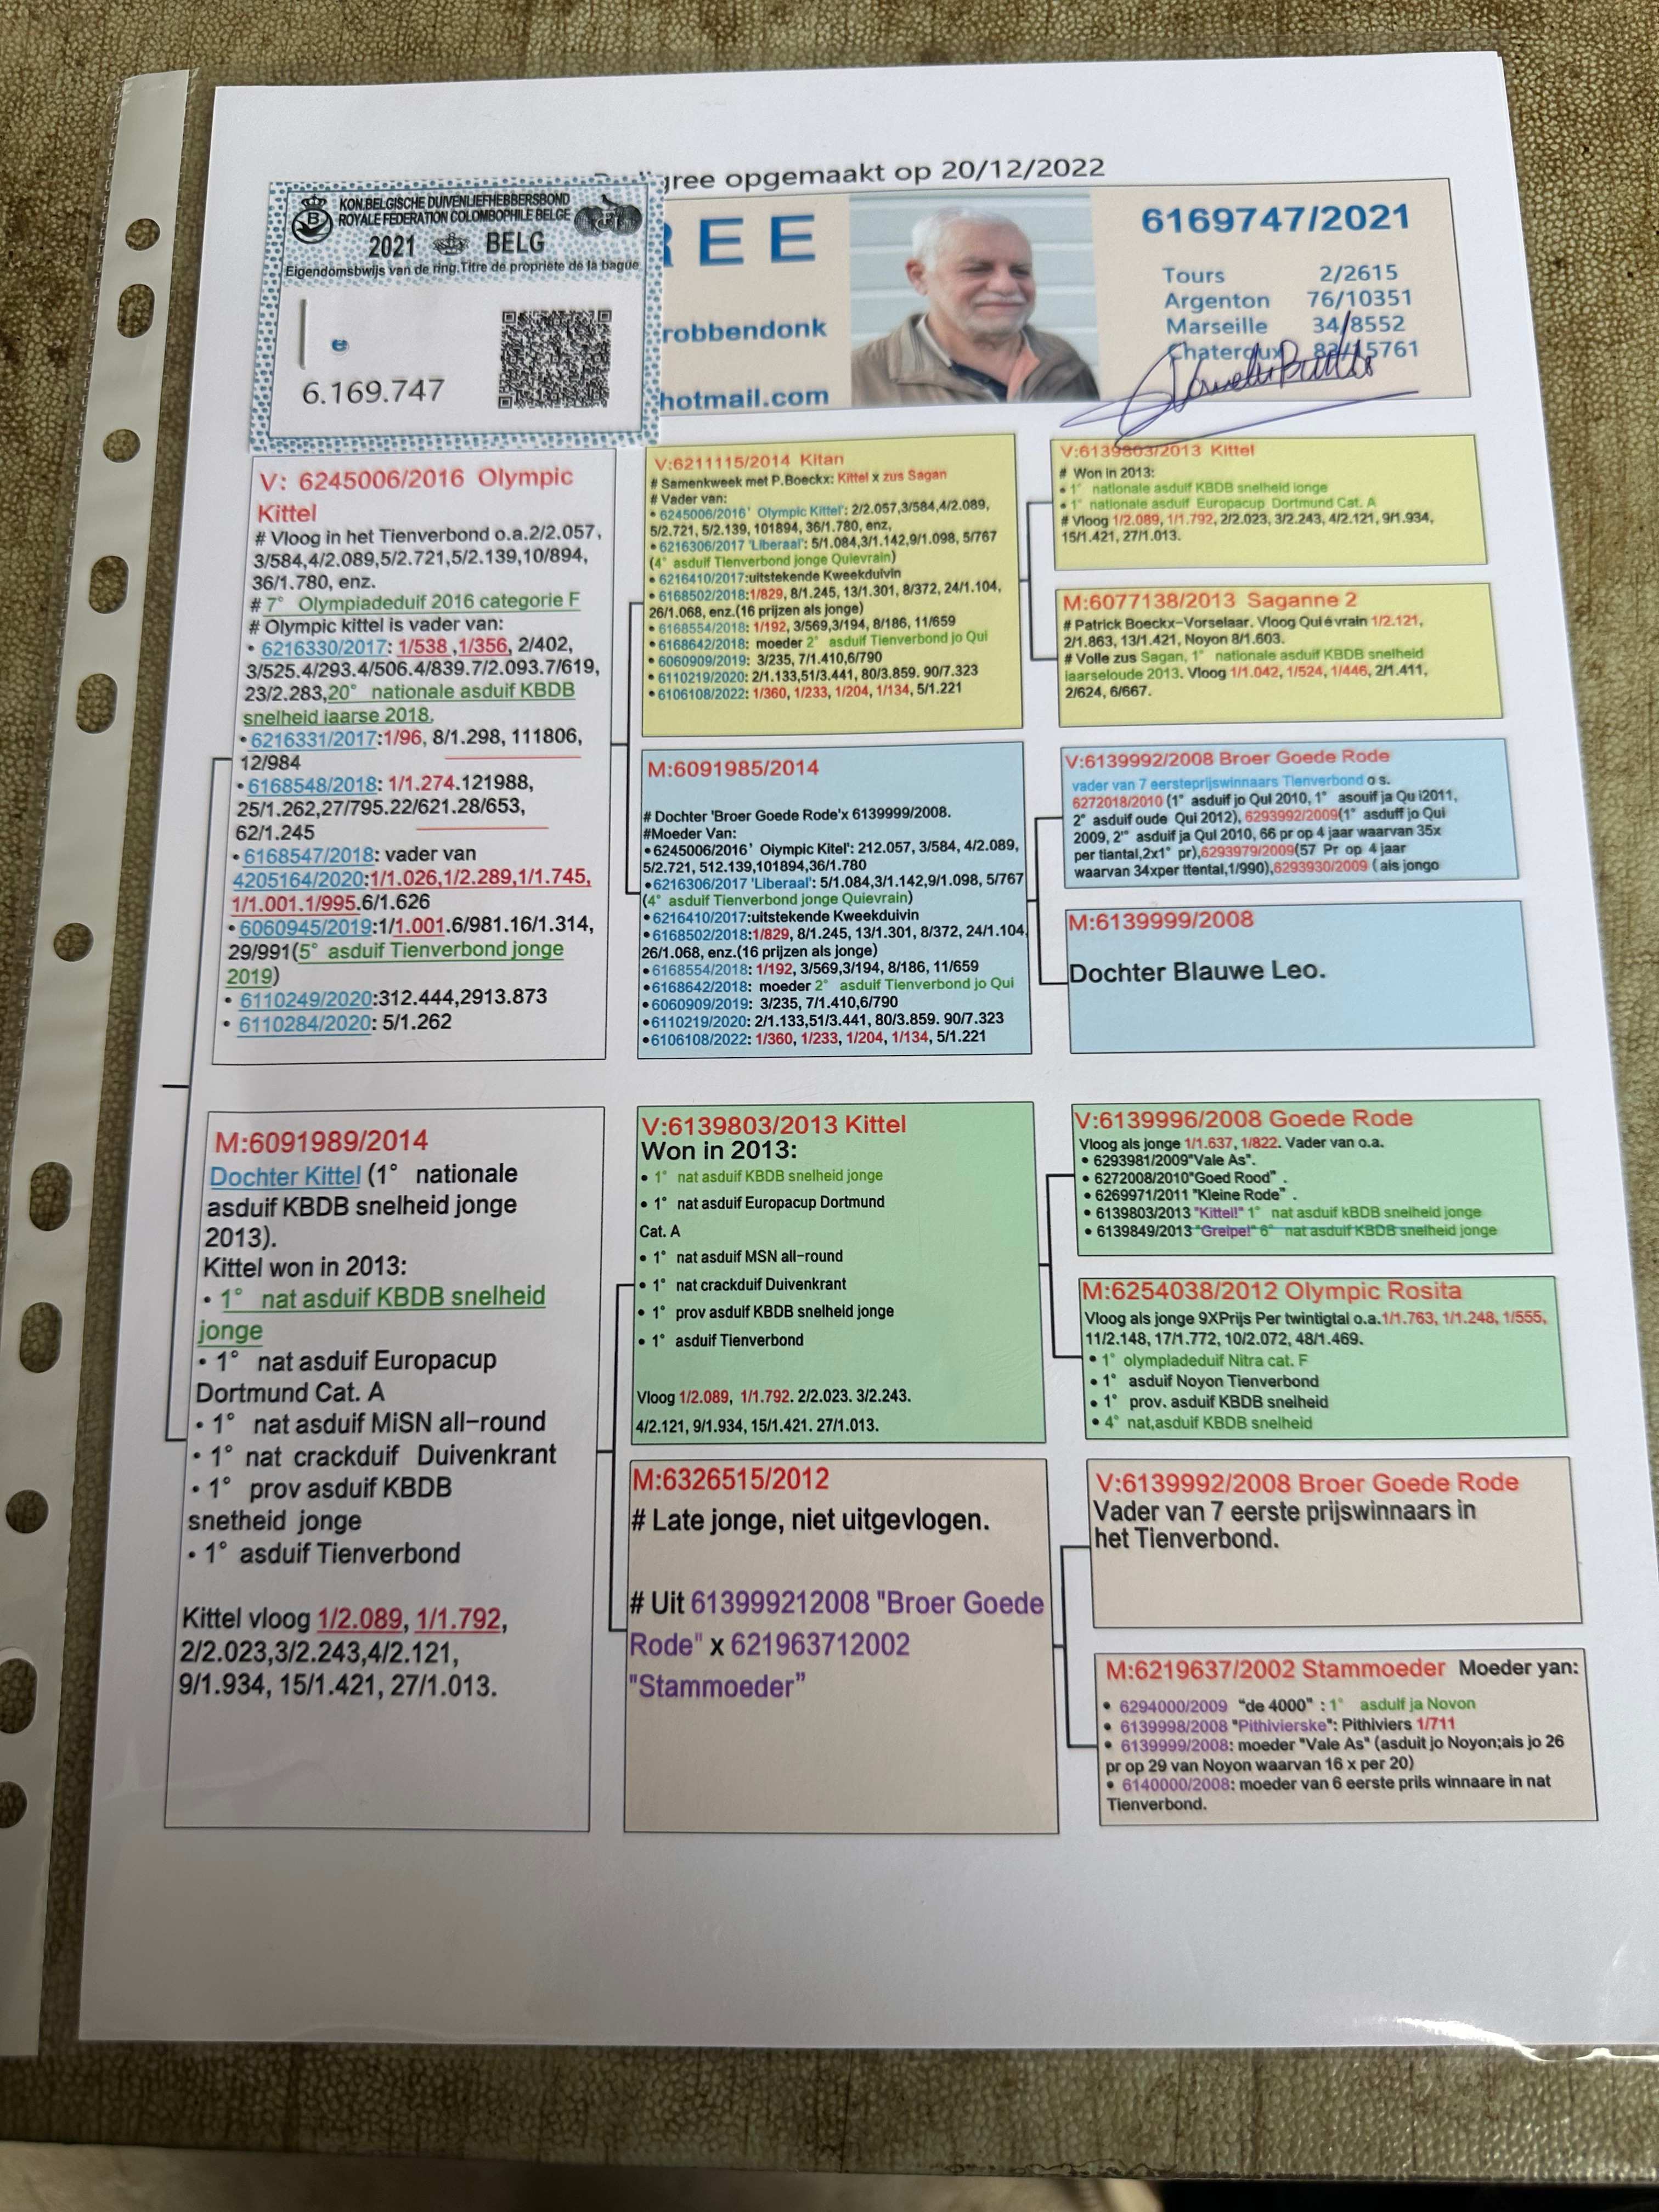 gree opgemaakt op 20/12/2022
KON.BELGISCHE DUIVENLIEFHEBBERSBOND
ROYALE FEDERATION COLOMBOPHILE BELGE
2021 BELG
Eigendomsbwijs van de ring.Titre de propriete de la bague
e
6.169.747
REE
robbendonk
hotmail.com
6169747/2021
Tours 2/2615
Argenton 76/10351
Marseille 34/8552
Chateroux 83/15761
V: 6245006/2016 Olympic
Kittel
# Vloog in het Tienverbond o.a.2/2.057,
3/584,4/2.089,5/2.721,5/2.139,10/894,
36/1.780, enz.
# 7° Olympiadeduif 2016 categorie F
# Olympic kittel is vader van:
• 6216330/2017: 1/538 ,1/356, 2/402,
3/525.4/293.4/506.4/839.7/2.093.7/619,
23/2.283,20° nationale asduif KBDB
snelheid iaarse 2018.
• 6216331/2017:1/96, 8/1.298, 111806,
12/984
• 6168548/2018: 1/1.274.121988,
25/1.262,27/795.22/621.28/653,
62/1.245
• 6168547/2018: vader van
4205164/2020:1/1.026,1/2.289,1/1.745,
1/1.001.1/995.6/1.626
• 6060945/2019:1/1.001.6/981.16/1.314,
29/991(5° asduif Tienverbond jonge
2019)
• 6110249/2020:312.444,2913.873
• 6110284/2020: 5/1.262
V:6211115/2014 Kitan
# Samenkweek met P.Boeckx: Kittel x zus Sagan
# Vader van:
• 6245006/2016' Olympic Kittel': 2/2.057,3/584,4/2.089,
5/2.721, 5/2.139, 101894, 36/1.780, enz,
• 6216306/2017 'Liberaal': 5/1.084,3/1.142,9/1.098, 5/767
(4° asduif Tienverbond jonge Quievrain)
• 6216410/2017:uitstekende Kweekduivin
• 6168502/2018:1/829, 8/1.245, 13/1.301, 8/372, 24/1.104,
26/1.068, enz.(16 prijzen als jonge)
• 6168554/2018: 1/192, 3/569,3/194, 8/186, 11/659
• 6168642/2018: moeder 2° asduif Tienverbond jo Qui
• 6060909/2019: 3/235, 7/1.410,6/790
• 6110219/2020: 2/1.133,51/3.441, 80/3.859. 90/7.323
• 6106108/2022: 1/360, 1/233, 1/204, 1/134, 5/1.221
V:6139803/2013 Kittel
# Won in 2013:
• 1° nationale asduif KBDB snelheid ionge
• 1° nationale asduif Europacup Dortmund Cat. A
# Vloog 1/2.089, 1/1.792, 2/2.023, 3/2.243, 4/2.121, 9/1.934,
15/1.421, 27/1.013.
M:6077138/2013 Saganne 2
# Patrick Boeckx-Vorselaar. Vloog Qui é vrain 1/2.121,
2/1.863, 13/1.421, Noyon 8/1.603.
# Volle zus Sagan, 1° nationale asduif KBDB snelheid
iaarseloude 2013. Vloog 1/1.042, 1/524, 1/446, 2/1.411,
2/624, 6/667.
M:6091985/2014
# Dochter 'Broer Goede Rode'x 6139999/2008.
#Moeder Van:
•6245006/2016' Olympic Kitel': 212.057, 3/584, 4/2.089,
5/2.721, 512.139,101894,36/1.780
•6216306/2017 'Liberaal': 5/1.084,3/1.142,9/1.098, 5/767
(4° asduif Tienverbond jonge Quievrain)
•6216410/2017:uitstekende Kweekduivin
•6168502/2018:1/829, 8/1.245, 13/1.301, 8/372, 24/1.104,
26/1.068, enz.(16 prijzen als jonge)
•6168554/2018: 1/192, 3/569,3/194, 8/186, 11/659
•6168642/2018: moeder 2° asduif Tienverbond jo Qui
•6060909/2019: 3/235, 7/1.410,6/790
•6110219/2020: 2/1.133,51/3.441, 80/3.859. 90/7.323
•6106108/2022: 1/360, 1/233, 1/204, 1/134, 5/1.221
V:6139992/2008 Broer Goede Rode
vader van 7 eersteprijswinnaars Tienverbond o s.
6272018/2010 (1° asduif jo Qul 2010, 1° asouif ja Qu i2011,
2° asduif oude Qui 2012), 6293992/2009(1° asduff jo Qui
2009, 2'° asduif ja Qul 2010, 66 pr op 4 jaar waarvan 35x
per tiantal,2x1° pr),6293979/2009(57 Pr op 4 jaar
waarvan 34xper ttental,1/990),6293930/2009 ( als jongo
M:6139999/2008
Dochter Blauwe Leo.
M:6091989/2014
Dochter Kittel (1° nationale
asduif KBDB snelheid jonge
2013).
Kittel won in 2013:
• 1° nat asduif KBDB snelheid
jonge
• 1° nat asduif Europacup
Dortmund Cat. A
• 1° nat asduif MiSN all-round
• 1° nat crackduif Duivenkrant
• 1° prov asduif KBDB
snetheid jonge
• 1° asduif Tienverbond
Kittel vloog 1/2.089, 1/1.792,
2/2.023,3/2.243,4/2.121,
9/1.934, 15/1.421, 27/1.013.
V:6139803/2013 Kittel
Won in 2013:
• 1° nat asduif KBDB snelheid jonge
• 1° nat asduif Europacup Dortmund
Cat. A
• 1° nat asduif MSN all-round
• 1° nat crackduif Duivenkrant
• 1° prov asduif KBDB snelheid jonge
• 1° asduif Tienverbond
Vloog 1/2.089, 1/1.792. 2/2.023. 3/2.243.
4/2.121, 9/1.934, 15/1.421. 27/1.013.
V:6139996/2008 Goede Rode
Vloog als jonge 1/1.637, 1/822. Vader van o.a.
• 6293981/2009"Vale As".
• 6272008/2010"Goed Rood" .
• 6269971/2011 "Kleine Rode" .
• 6139803/2013 "Kittel!" 1° nat asduif kBDB snelheid jonge
• 6139849/2013 "Greipe!" 6° nat asduif KBDB snelheid jonge
M:6254038/2012 Olympic Rosita
Vloog als jonge 9XPrijs Per twintigtal o.a.1/1.763, 1/1.248, 1/555,
11/2.148, 17/1.772, 10/2.072, 48/1.469.
• 1° olympladeduif Nitra cat. F
• 1° asduif Noyon Tienverbond
• 1° prov. asduif KBDB snelheid
• 4° nat,asduif KBDB snelheid
M:6326515/2012
# Late jonge, niet uitgevlogen.
# Uit 613999212008 "Broer Goede
Rode" x 621963712002
"Stammoeder”
V:6139992/2008 Broer Goede Rode
Vader van 7 eerste prijswinnaars in
het Tienverbond.
M:6219637/2002 Stammoeder Moeder yan:
• 6294000/2009 “de 4000” : 1° asdulf ja Novon
• 6139998/2008 "Pithivierske": Pithiviers 1/711
• 6139999/2008: moeder "Vale As" (asduit jo Noyon;ais jo 26
pr op 29 van Noyon waarvan 16 x per 20)
• 6140000/2008: moeder van 6 eerste prils winnaare in nat
Tienverbond.